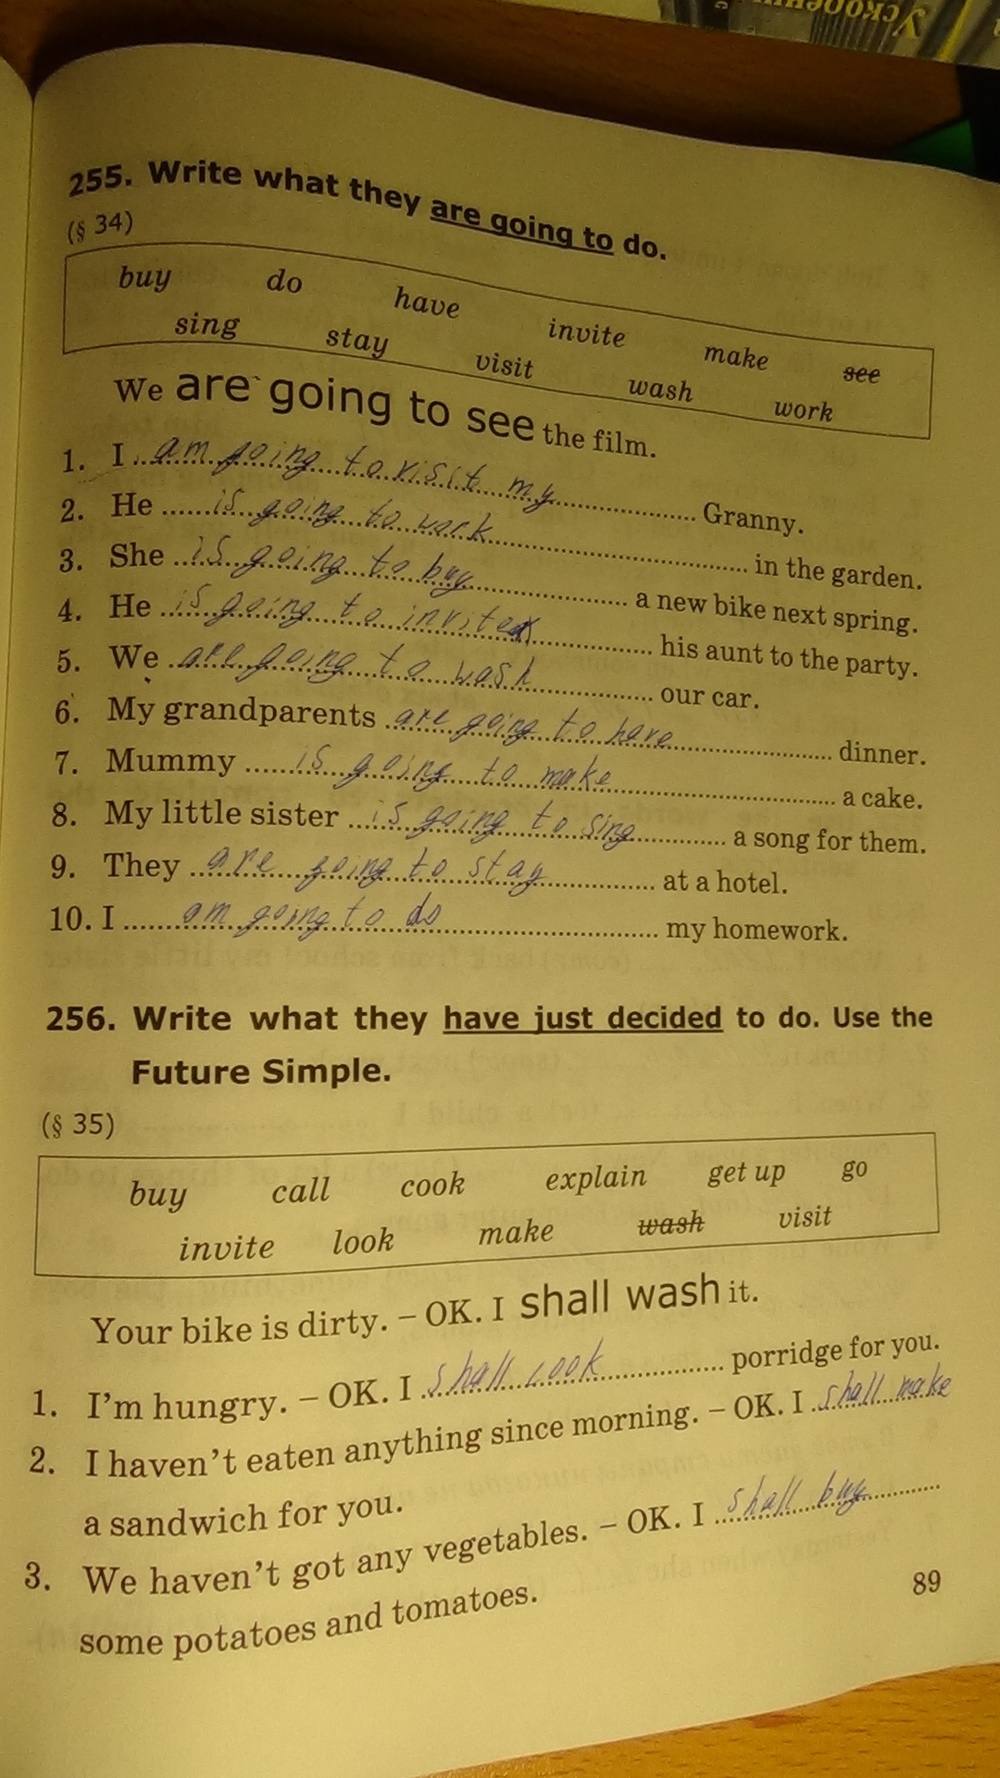 Ускорени
255. Write what they are going to do.
(§ 34)
buy do have invite make see
sing stay visit wash work
We are going to see the film.
1. I am going to visit my Granny.
2. He is going to work in the garden.
3. She is going to buy a new bike next spring.
4. He is going to invite his aunt to the party.
5. We are going to wash our car.
6. My grandparents are going to have dinner.
7. Mummy is going to make a cake.
8. My little sister is going to sing a song for them.
9. They are going to stay at a hotel.
10. I am going to do my homework.
256. Write what they have just decided to do. Use the
Future Simple.
(§ 35)
buy call cook explain get up go
invite look make wash visit
Your bike is dirty. – OK. I shall wash it.
1. I'm hungry. – OK. I shall cook porridge for you.
2. I haven't eaten anything since morning. – OK. I shall make
a sandwich for you.
3. We haven't got any vegetables. – OK. I shall buy
some potatoes and tomatoes.
89